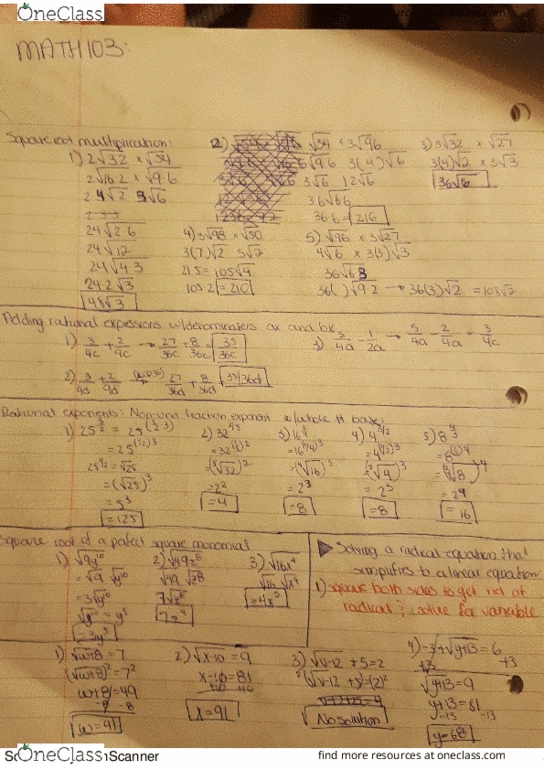 OneClass
MATH 103:
Square root multiplication:
1) 2√32 × √54
2√16·2 × √9·6
2·4√2 3√6
24√2·6
24√12
24√4·3
24·2√3
48√3
2) √54 × 3√96
√9·6 3(4)√6
3√6 12√6
36√36
36·6 = 216
3) 3√32 × √27
3(4)√2 × 3√3
36√6
4) 3√98 × √50
3(7)√2 5√2
21·5 = 105√4
105·2 = 210
5) √96 × 3√27
4√6 × 3(3)√3
36( )√9·2 → 36(3)√2 = 108√2
Adding rational expressions w/denominaters ax and bx
1) 3/4c + 2/9c → 27/36c + 8/36c = 35/36c
3) 5/4a - 1/2a → 5/4a - 2/4a = 3/4a
2) 3/4d + 2/9d → 27/36d + 8/36d 35/36d
Rational exponents: Non unit fraction exponent w/ whole # base
1) 25^3/2 = 25^(1/2·3)
= 25^(1/2)3
25^1/2 = √25
= (√25)^3
= 5^3
= 125
2) 32^2/5
= (⁵√32)^2
= 2^2
= 4
3) 16^3/4
= 16^(1/4)3
= (⁴√16)^3
= 2^3
= 8
4) 4^3/2
= 4^(1/2)3
= (²√4)^3
= 2^3
= 8
5) 8^4/3
= (³√8)^4
= 2^4
= 16
Square root of a pefect square monomial
1) √9y^10
= √9 √y^10
= 3√y^10
√y^10 = y^5
= 3y^5
2) √49z^8
√49 √z^8
7√z^8
7z^4
3) √16x^4
√16 √x^4
= 4x^2
▶ Solving a radical equation that
simplifies to a linear equation:
1) square both sides to get rid of
radical; solve for variable
1) √w+8 = 7
(√w+8)^2 = 7^2
w+8 = 49
-8 -8
w = 41
2) √x-10 = 9
x-10 = 81
+10 +10
x = 91
3) √v-12 + 5 = 2
No solution
4) -3 + √y+13 = 6
+3 +3
√y+13 = 9
y+13 = 81
-13 -13
y = 68
OneClass
Scanner
find more resources at oneclass.com